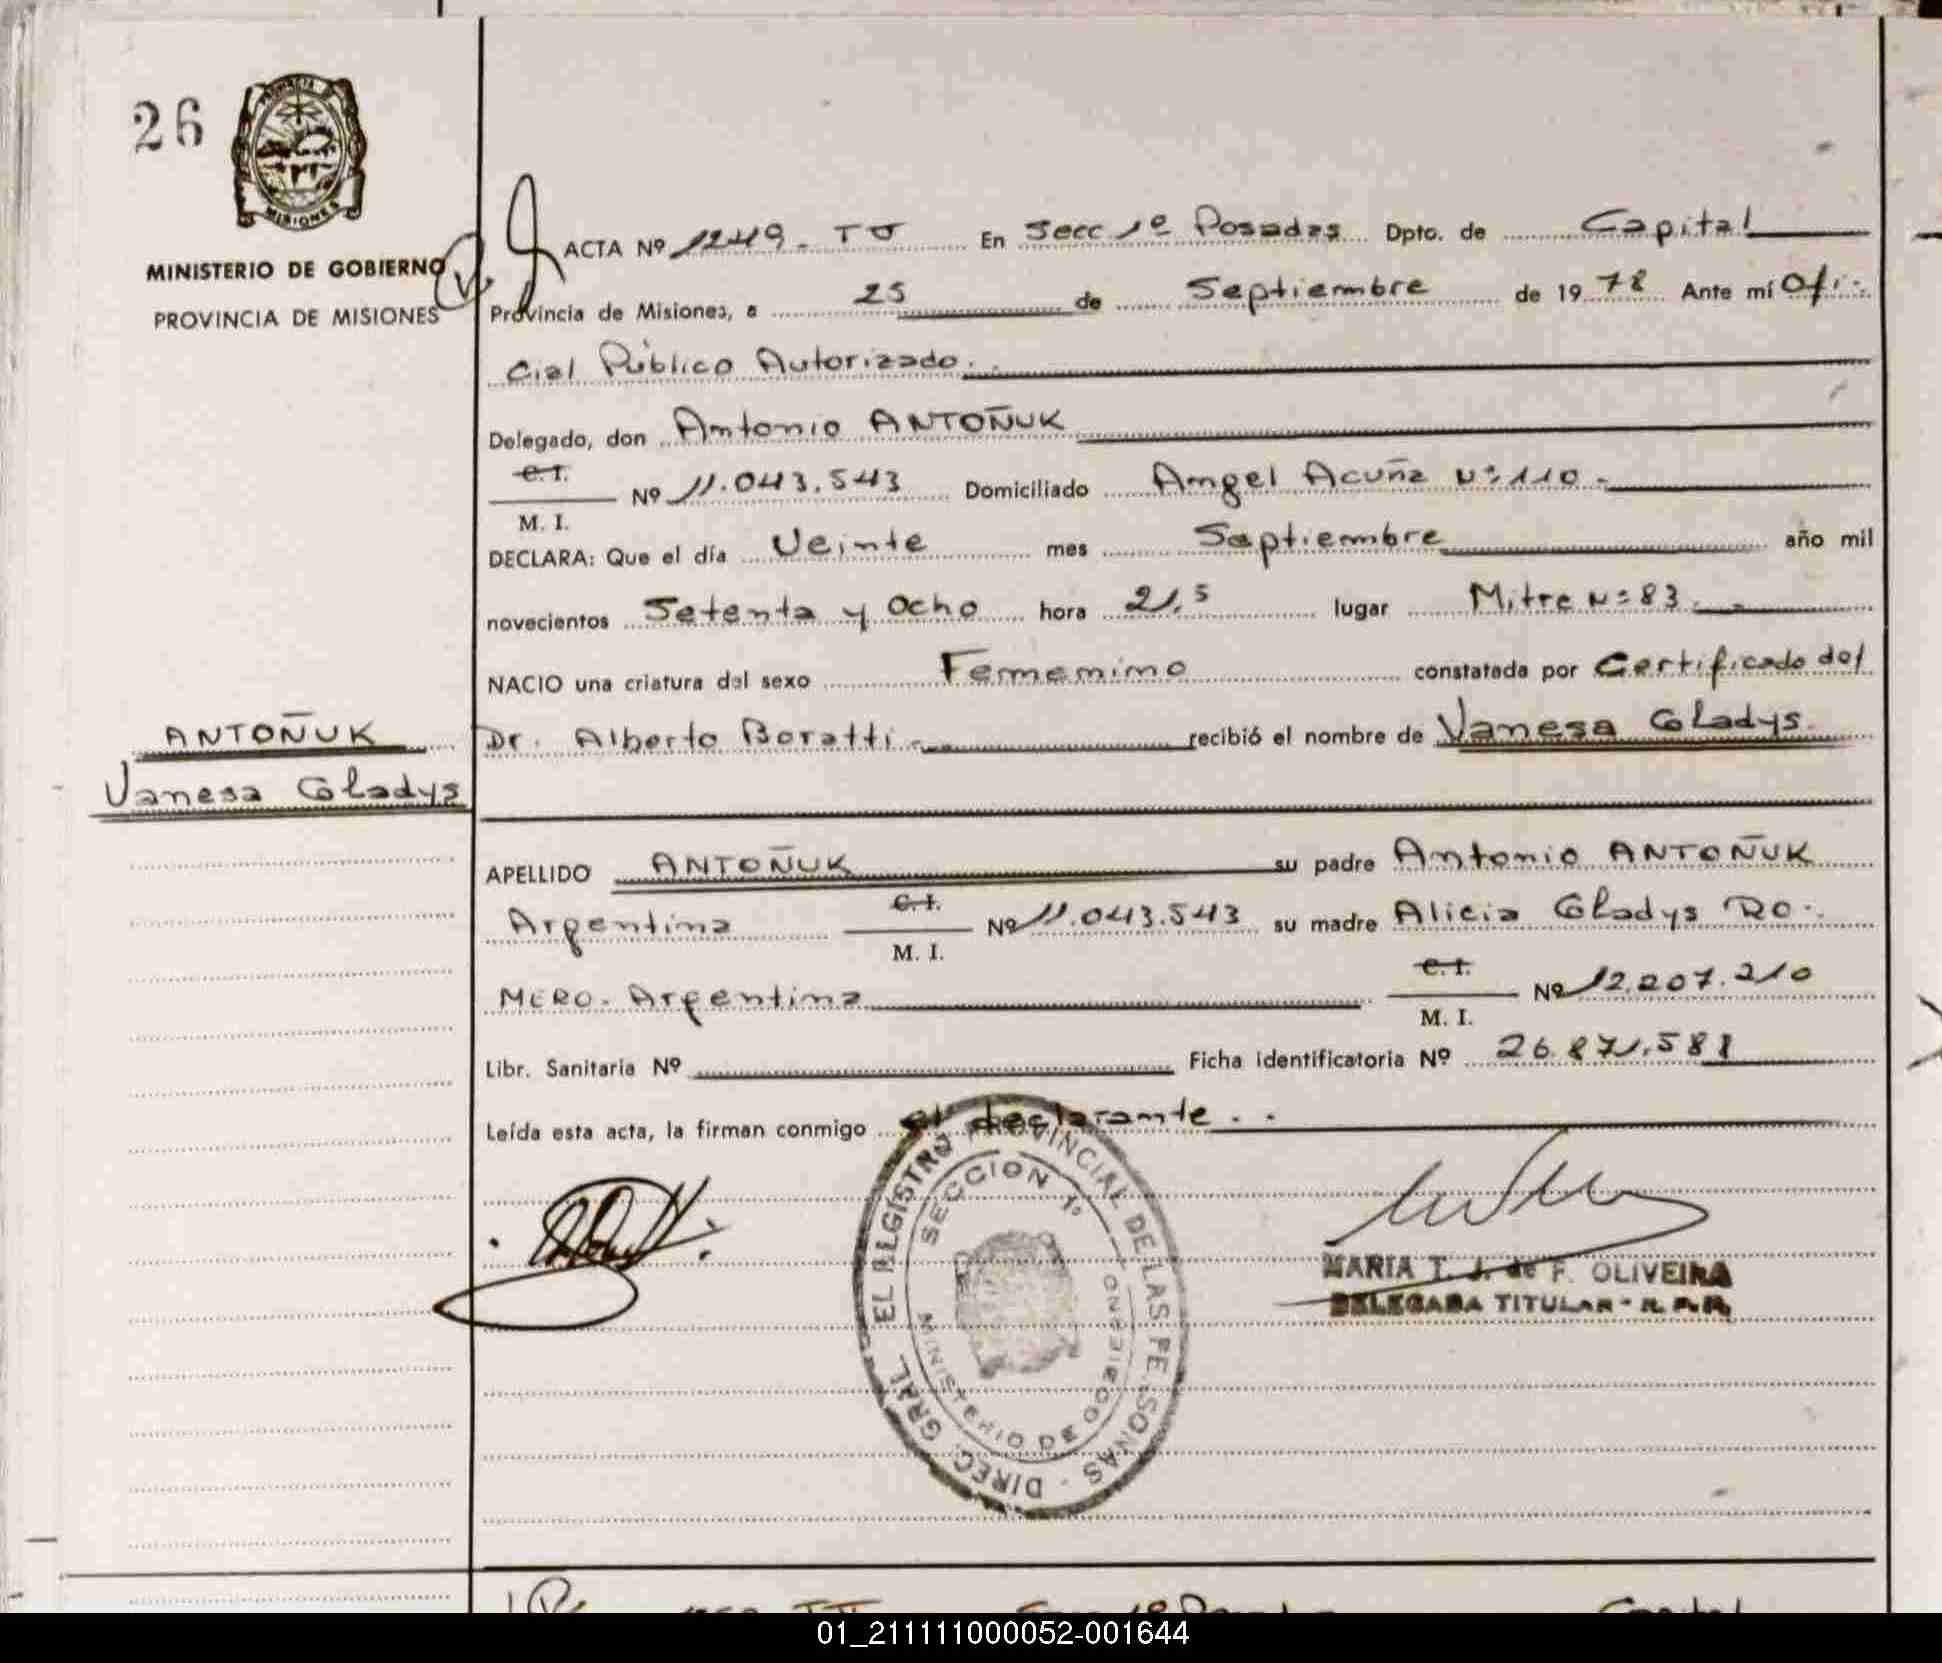 26
PROVINCIA DE
MISIONES
MINISTERIO DE GOBIERNO
PROVINCIA DE MISIONES
ACTA Nº 1249. TJ En Secc 1º Posadas Dpto. de Capital
Provincia de Misiones, a 25 de Septiembre de 1978 Ante mí Ofi-
cial Público Autorizado.
Delegado, don Antonio ANTOÑUK
C.I.
M. I.
Nº 11.043.543 Domiciliado Angel Acuña Nº 110.-
DECLARA: Que el día Veinte mes Septiembre año mil
novecientos Setenta y Ocho hora 21,5 lugar Mitre Nº 83.
NACIO una criatura del sexo Femenino constatada por Certificado del
Dr. Alberto Boratti.- recibió el nombre de Vanesa Gladys
ANTOÑUK
Vanesa Gladys
APELLIDO ANTOÑUK su padre Antonio ANTOÑUK
Argentina C.I. M. I. Nº 11.043.543 su madre Alicia Gladys RO-
MERO. Argentina C.I. M. I. Nº 12.207.210
Libr. Sanitaria Nº Ficha identificatoria Nº 26.871.588
Leída esta acta, la firman conmigo el declarante..
DIREC. GRAL. EL REGISTRO PROVINCIAL DE LAS PERSONAS
SECCION 1º
MINISTERIO DE GOBIERNO
MARIA T. J. de F. OLIVEIRA
DELEGADA TITULAR - R. P. P.
01_211111000052-001644